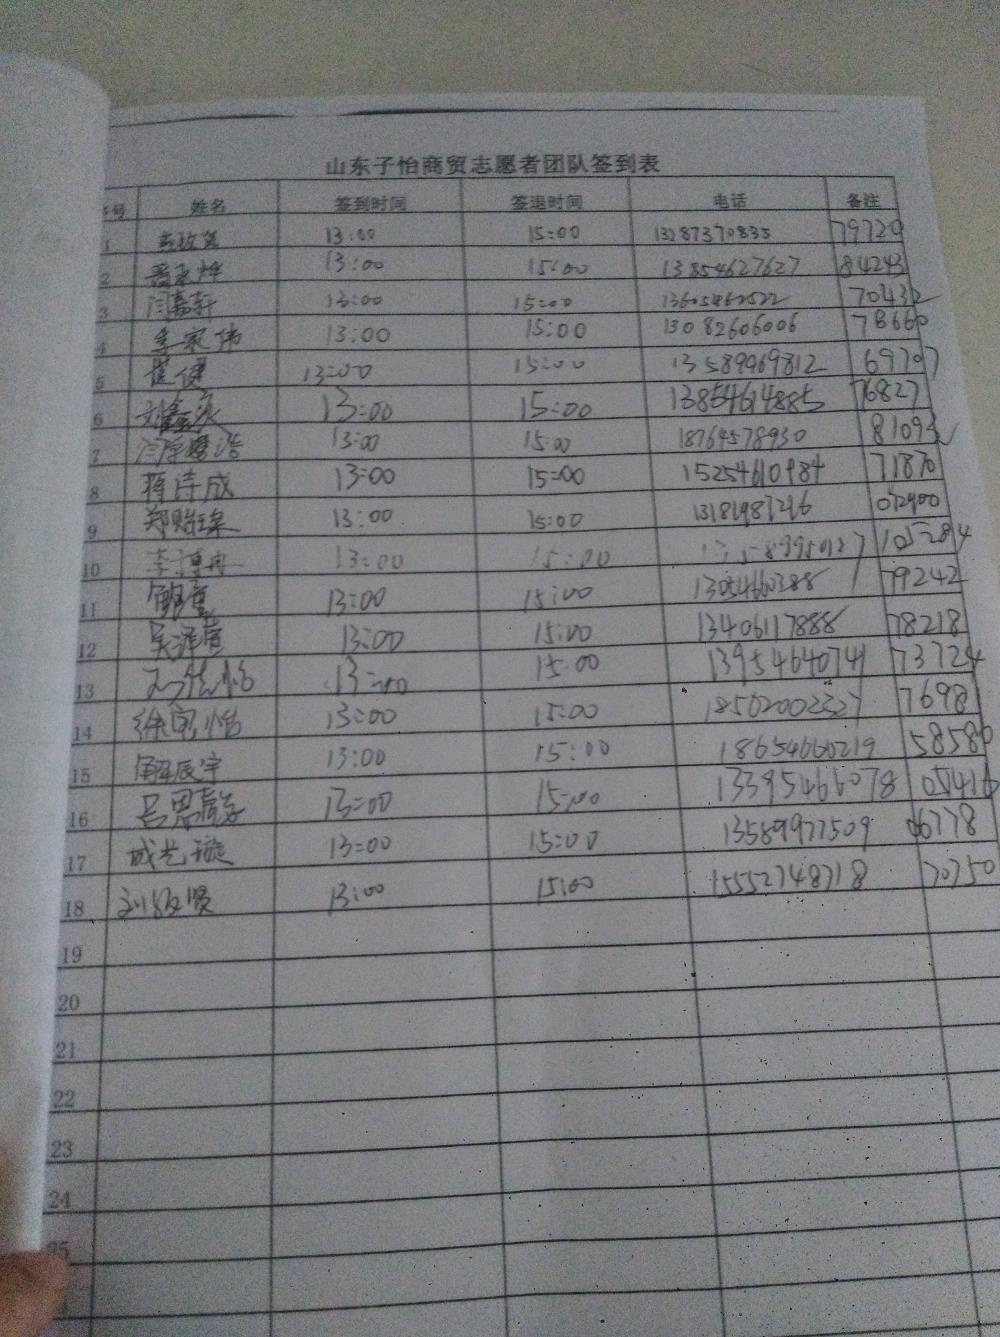 山东子怡商贸志愿者团队签到表
序号 姓名 签到时间 签退时间 电话 备注
1 13:00 15:00 13287370835 79720
2 13:00 15:00 13854627627 84243
3 闫嘉轩 13:00 15:00 70432
4 李家伟 13:00 15:00 13082606006 78660
5 崔健 13:00 15:00 13589969812 69707
6 13:00 15:00 13854614885 76827
7 13:00 15:00 18764578930 81093
8 蒋诗成 13:00 15:00 15254610984 71870
9 郑贻璨 13:00 15:00
10 李博冉 13:00 15:00
11 13:00 15:00 13054660288 79242
12 吴泽萱 13:00 15:00 13406117888 78218
13 13:00 15:00 13954640741 73724
14 徐宛怡 13:00 15:00 18502002327 7698
15 解辰宇 13:00 15:00 18654660219 58580
16 13:00 15:00 13395466078 05416
17 成艺璇 13:00 15:00 13589977509 06778
18 13:00 15:00 15552748718 70750
19
20
21
22
23
24
25